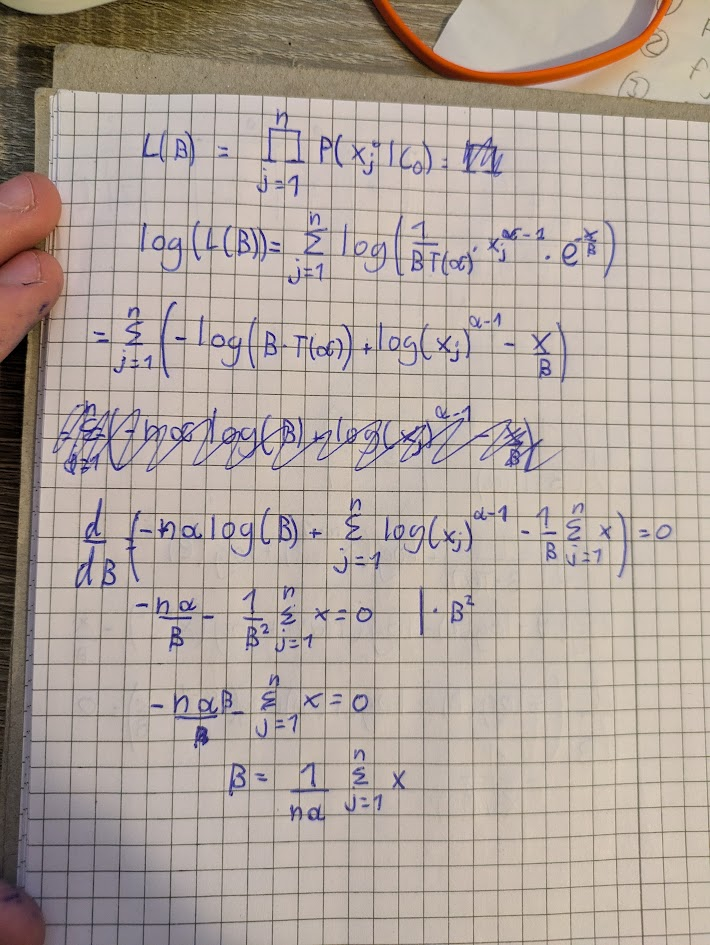 L(B) = ∏_{j=1}^{n} P(x_j | C_0) =
log(L(B)) = Σ_{j=1}^{n} log(1/(B T(α)) · x_j^{α-1} · e^{-x/B})
= Σ_{j=1}^{n} (-log(B · T(α)) + log(x_j)^{α-1} - x/B)
d/dB (-nα log(B) + Σ_{j=1}^{n} log(x_j)^{α-1} - 1/B Σ_{j=1}^{n} x) = 0
-nα/B - 1/B² Σ_{j=1}^{n} x = 0 | · B²
-nαB - Σ_{j=1}^{n} x = 0
B = 1/(nα) Σ_{j=1}^{n} x